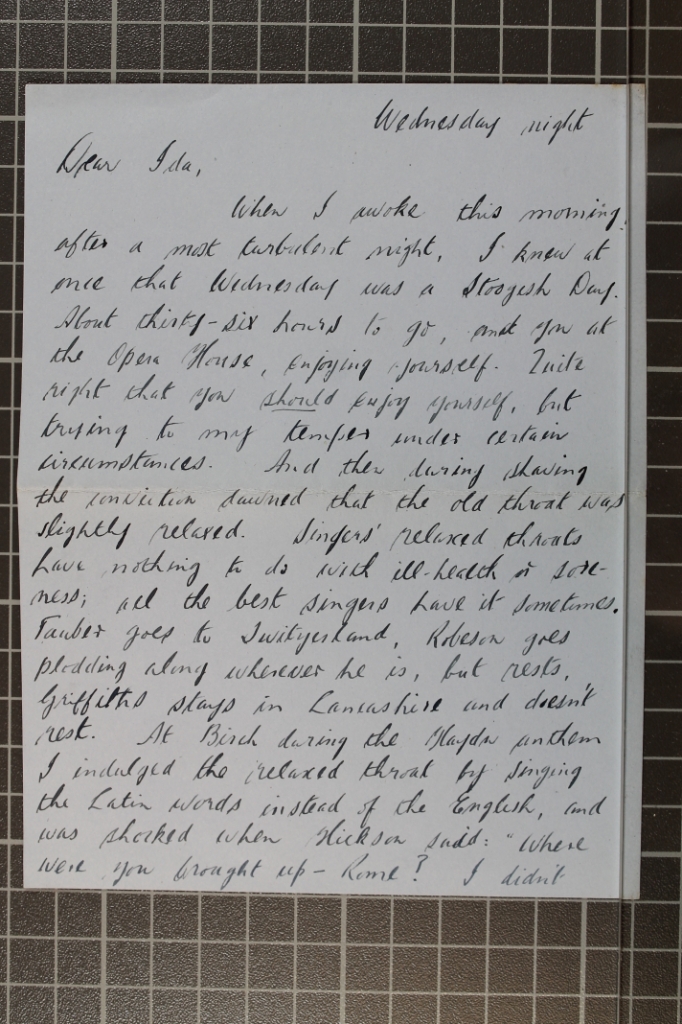 Wednesday night
Dear Ida,
When I awoke this morning,
after a most turbulent night, I knew at
once that Wednesday was a Stoogesh Day.
About thirty-six hours to go, and you at
the Opera House, enjoying yourself. Quite
right that you should enjoy yourself, but
trying to my temper under certain
circumstances. And then during shaving
the conviction dawned that the old throat was
slightly relaxed. Singers' relaxed throats
have nothing to do with ill-health or sore-
ness; all the best singers have it sometimes.
Tauber goes to Switzerland, Robeson goes
plodding along wherever he is, but rests,
Griffiths stays in Lancashire and doesn't
rest. At Birch during the Haydn anthem
I indulged the relaxed throat by singing
the Latin words instead of the English, and
was shocked when Hickson said: "Where
were you brought up - Rome? I didn't